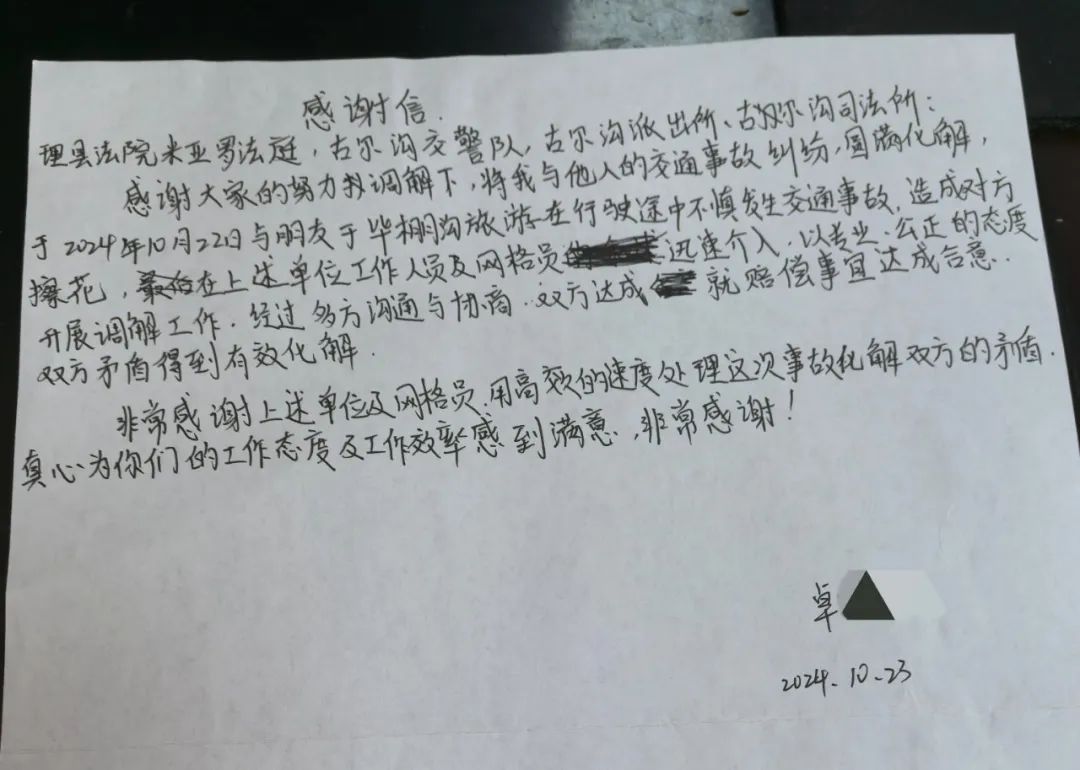 感谢信.
理县法院米亚罗法庭，古尔沟交警队，古尔沟派出所、古尔沟司法所：
感谢大家的努力和调解下，将我与他人的交通事故纠纷，圆满化解，
于2024年10月22日与朋友于毕棚沟旅游在行驶途中不慎发生交通事故，造成对方
擦花，在上述单位工作人员及网格员迅速介入．以专业．公正的态度
开展调解工作．经过多方沟通与协商．双方达成就赔偿事宜达成合意．
双方矛盾得到有效化解．
非常感谢上述单位及网格员．用高效的速度处理这次事故化解双方的矛盾．
真心为你们的工作态度及工作效率感到满意，非常感谢！
卓
2024.10.23